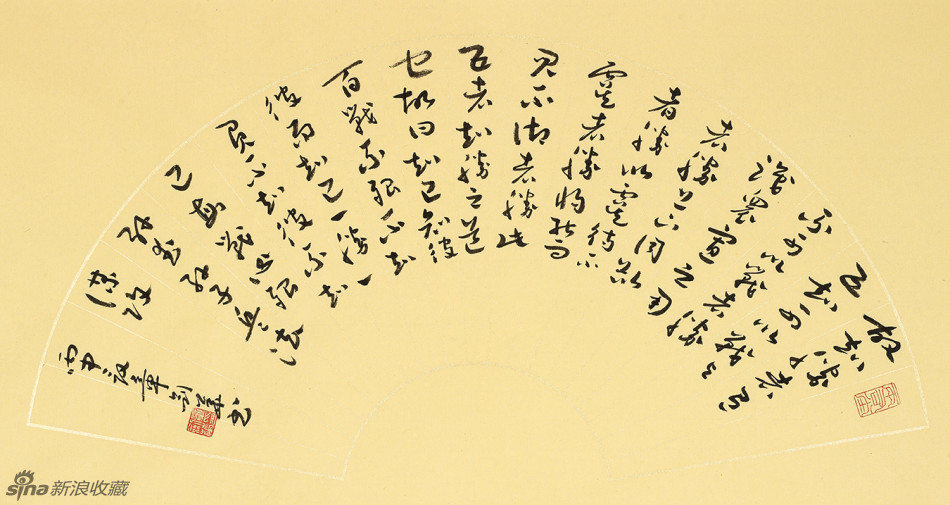 故知勝者有
五知可以戰與
不可以戰者勝
識衆寡之用
者勝上下同欲
者勝以虞待不
虞者勝將能而
君不御者勝此
五者知勝之道
也故曰知己知彼
百戰不殆不知
彼而知己一勝一
負不知彼不知
己每戰必殆
孫子兵法
丙申 劉 書
sina新浪收藏